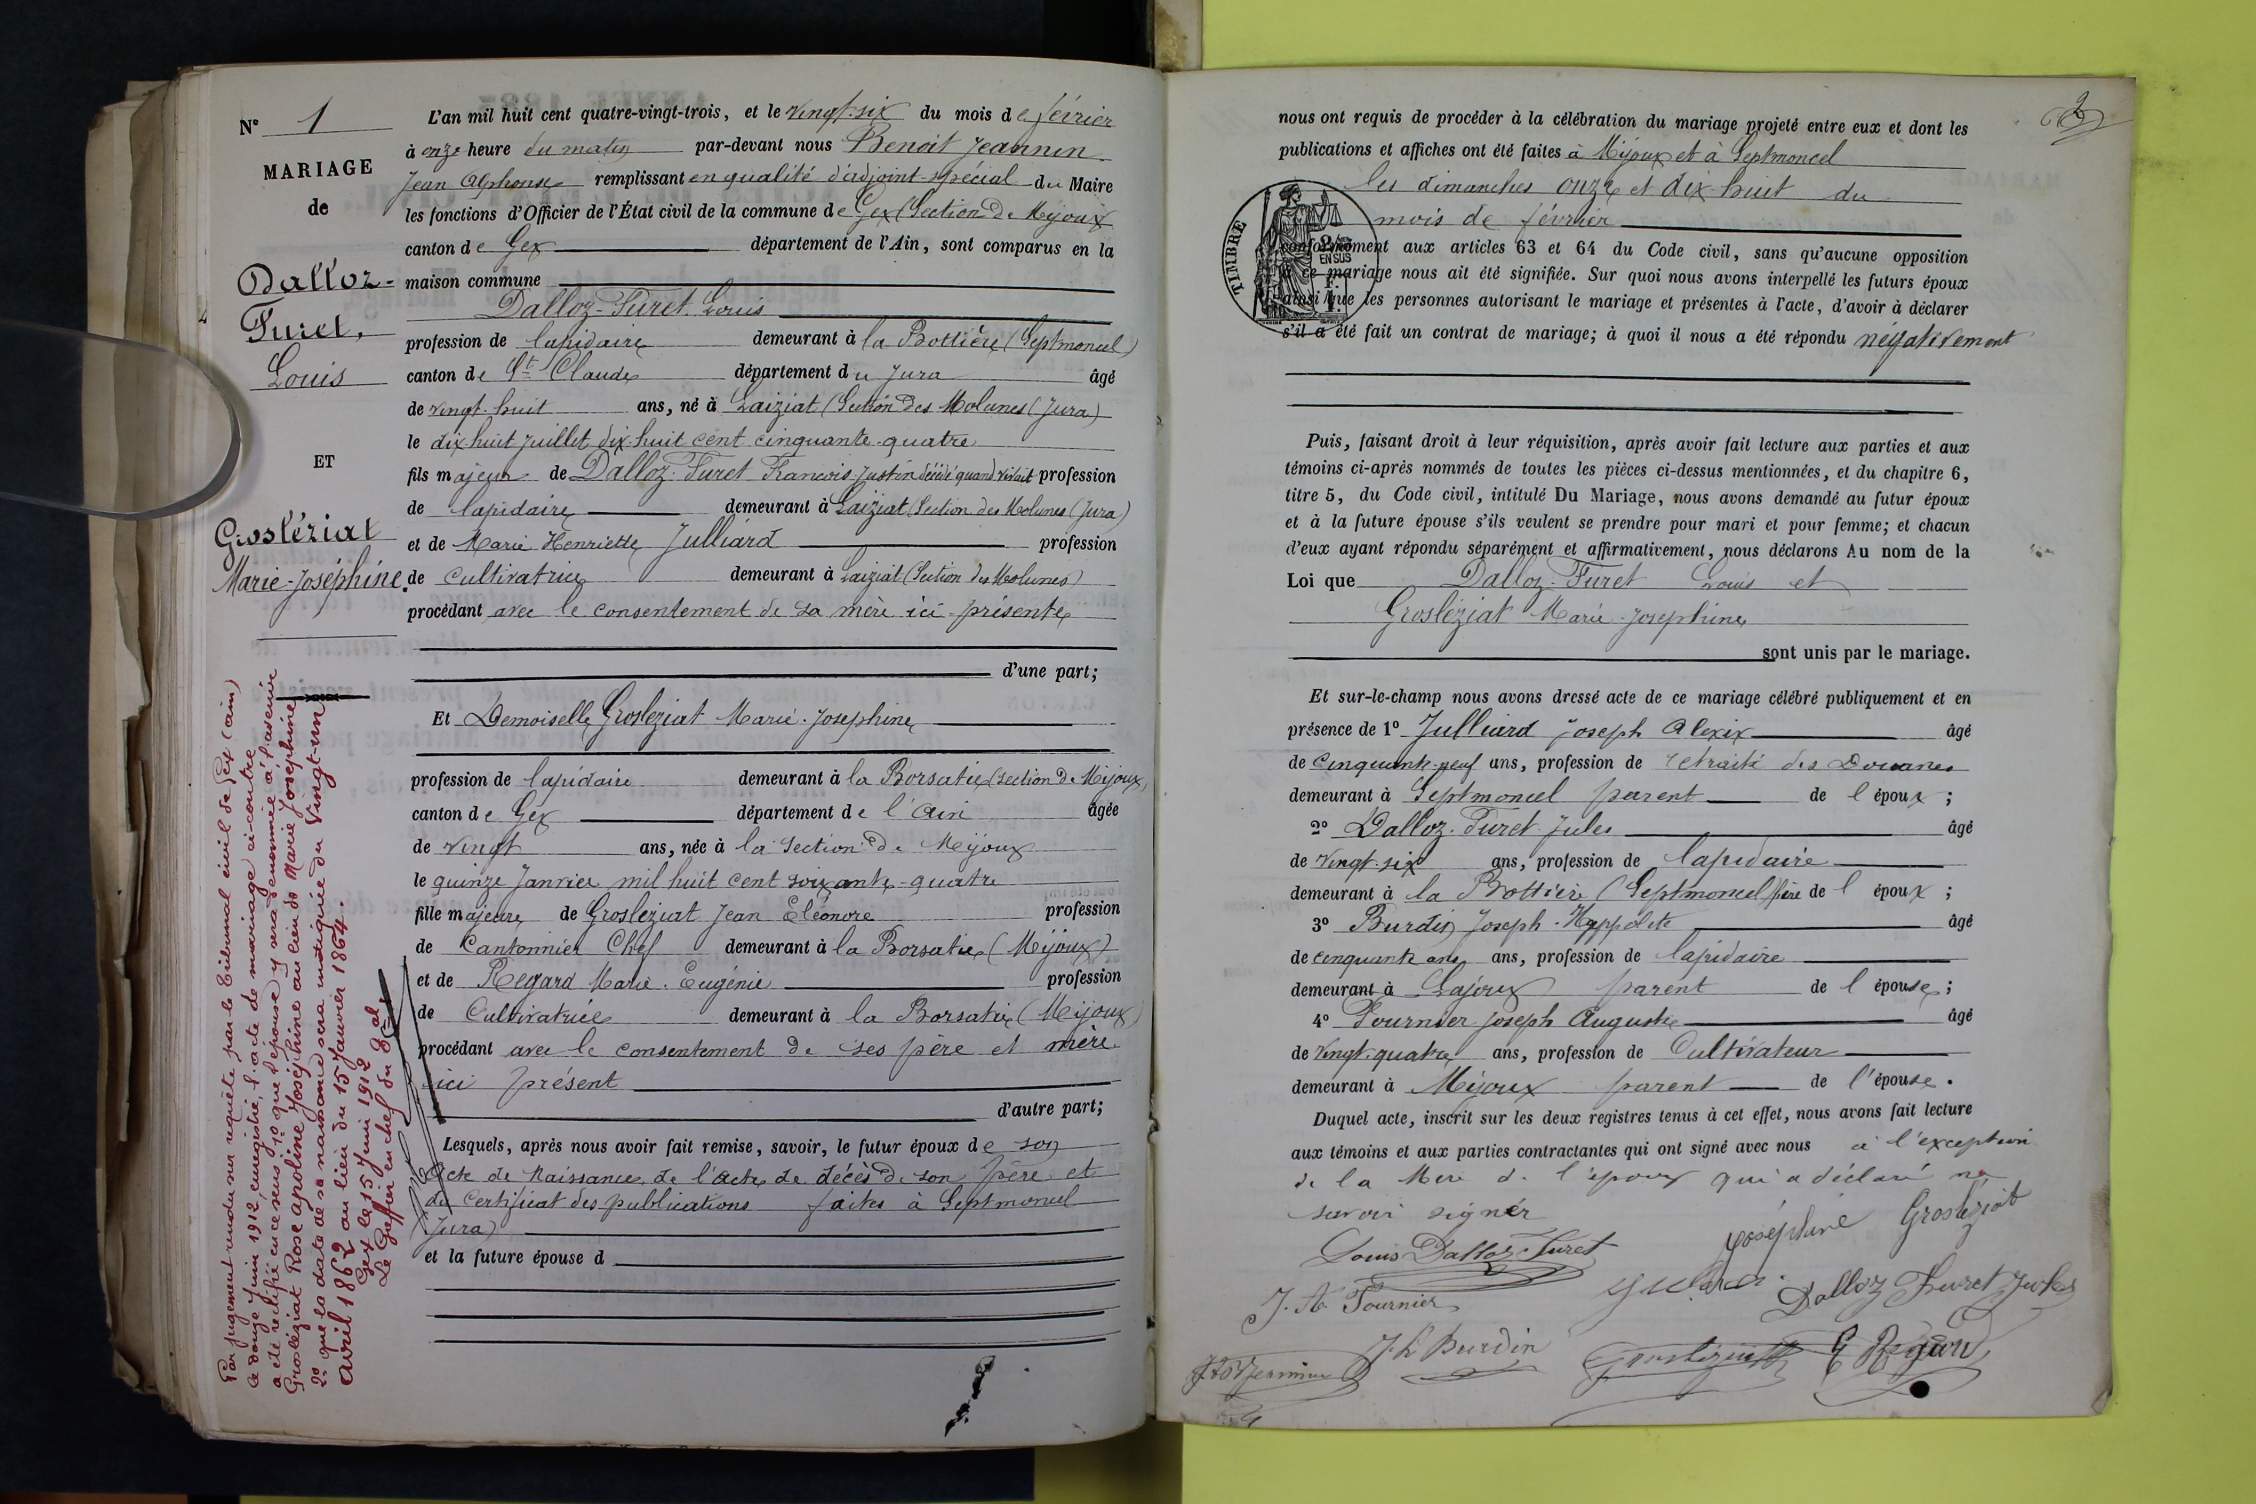 N° 1
MARIAGE
de
Dalloz-
Furet,
Louis
ET
Grosléziat
Marie-Joséphine.
Par jugement rendu sur requête par le Tribunal civil de Gex (ain)
le douze Juin 1912, enregistré, l'acte de mariage ci-contre
a été rectifié en ce sens 1° que l'épouse y sera dénommée à l'avenir
Grosléziat Rose apoline Joséphine au lieu de Marie Joséphine
2° que la date de sa naissance sera indiquée du Vingt-un
avril 1862 au lieu du 15 Janvier 1864.
Gex le 15 Juin 1912
Le Greffier en chef du Bal
L'an mil huit cent quatre-vingt-trois, et le vingt-six du mois de février
à onze heure du matin par-devant nous Benoit Jeannin
Jean Alphonse remplissant en qualité d'adjoint-spécial du Maire
les fonctions d'Officier de l'État civil de la commune de Gex (Section de Mijoux
canton de Gex département de l'Ain, sont comparus en la
maison commune
Dalloz-Furet Louis
profession de lapidaire demeurant à la Bottière (Septmoncel)
canton de St Claude département du Jura âgé
de vingt-huit ans, né à Laiziat (Section des Molunes (Jura)
le dix-huit juillet dix-huit cent cinquante-quatre
fils majeur de Dalloz-Furet Francois-Justin décédé quand vivait profession
de lapidaire demeurant à Laiziat (Section des Molunes (Jura)
et de Marie Henriette Julliard profession
de cultivatrice demeurant à Laiziat (Section des Molunes)
procédant avec le consentement de sa mère ici-présente
d'une part;
Et Demoiselle Grosleziat Marie-Josephine
profession de lapidaire demeurant à la Borsatie (section de Mijoux,
canton de Gex département de l'ain âgée
de vingt ans, née à la section de Mijoux
le quinze Janvier mil huit cent soixante-quatre
fille majeure de Grosleziat Jean Eléonore profession
de Cantonnier Chef demeurant à la Borsatie (Mijoux)
et de Regard Marie-Eugénie profession
de Cultivatrice demeurant à la Borsatie (Mijoux)
procédant avec le consentement de ses père et mère
ici présent
d'autre part;
Lesquels, après nous avoir fait remise, savoir, le futur époux de son
acte de naissance, de l'acte de décès de son père et
du certificat des publications faites à Septmoncel
(Jura)
et la future épouse d
2
nous ont requis de procéder à la célébration du mariage projeté entre eux et dont les
publications et affiches ont été faites à Mijoux et à Septmoncel
les dimanches onze et dix-huit du
mois de février
TIMBRE
2/10 EN SUS
conformément aux articles 63 et 64 du Code civil, sans qu'aucune opposition
à ce mariage nous ait été signifiée. Sur quoi nous avons interpellé les futurs époux
ainsi que les personnes autorisant le mariage et présentes à l'acte, d'avoir à déclarer
s'il a été fait un contrat de mariage; à quoi il nous a été répondu négativement
Puis, faisant droit à leur réquisition, après avoir fait lecture aux parties et aux
témoins ci-après nommés de toutes les pièces ci-dessus mentionnées, et du chapitre 6,
titre 5, du Code civil, intitulé Du Mariage, nous avons demandé au futur époux
et à la future épouse s'ils veulent se prendre pour mari et pour femme; et chacun
d'eux ayant répondu séparément et affirmativement, nous déclarons Au nom de la
Loi que Dalloz-Furet Louis et
Grosléziat Marie-Josephine
sont unis par le mariage.
Et sur-le-champ nous avons dressé acte de ce mariage célébré publiquement et en
présence de 1° Julliard Joseph Alexix âgé
de Cinquante-neuf ans, profession de retraité des Douanes
demeurant à Septmoncel parent de l époux;
2° Dalloz-Furet Jules âgé
de vingt-six ans, profession de lapidaire
demeurant à la Bottière (Septmoncel) frère de l époux;
3° Burdin Joseph-Hyppolite âgé
de cinquante ans ans, profession de lapidaire
demeurant à Lajoux parent de l épouse;
4° Fournier Joseph Auguste âgé
de vingt-quatre ans, profession de Cultivateur
demeurant à Mijoux parent de l'épouse.
Duquel acte, inscrit sur les deux registres tenus à cet effet, nous avons fait lecture
aux témoins et aux parties contractantes qui ont signé avec nous à l'exception
de la Mère de l'époux qui a déclaré ne
savoir signer
Louis Dalloz Furet Joséphine Grosléziat
J. A. Fournier Dalloz Furet Jules
J. h Burdin Grosléziat E Regard